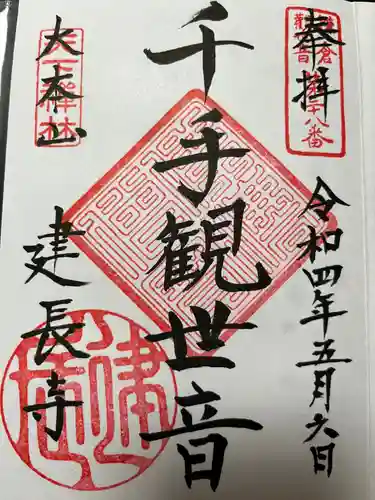 奉拝
鎌倉
観音
第二十八番
令和四年五月六日
千手観世音
大本山
天下禅林
建長寺